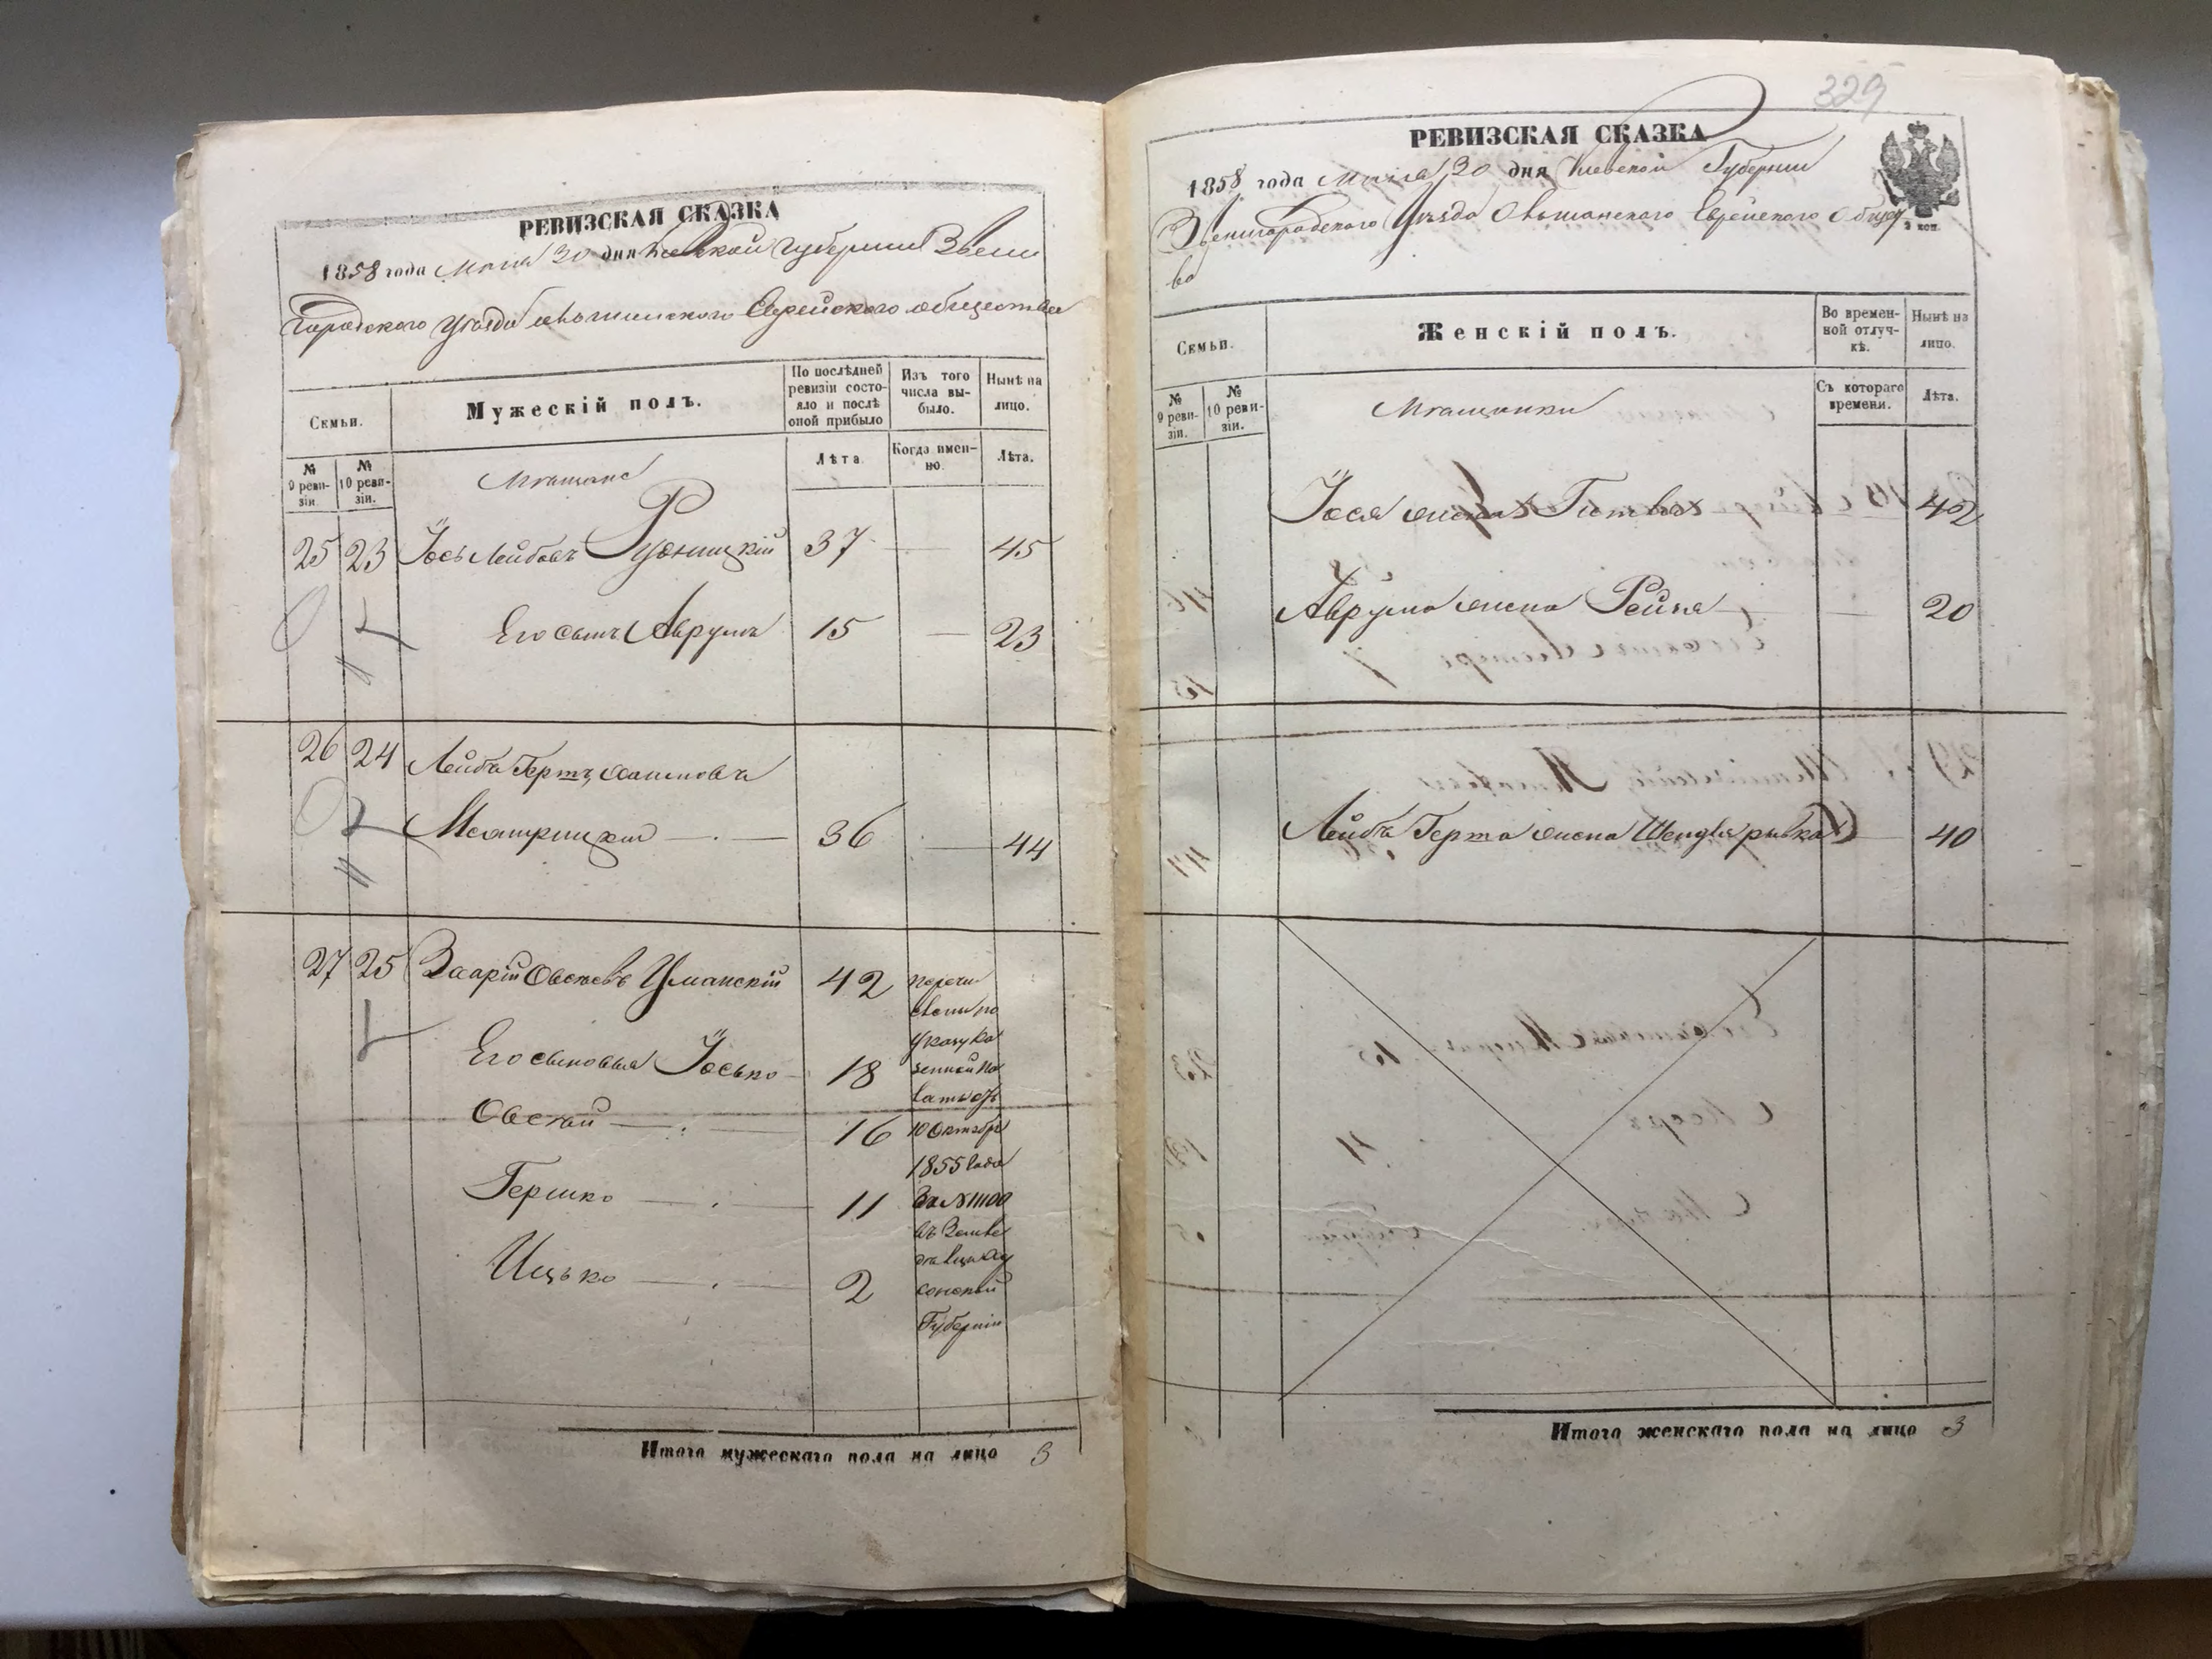 РЕВИЗСКАЯ СКАЗКА
1858 года Мая 30 дня Киевской губернии Звени
городского уезда Ольшанского Еврейского общества
Семьи.
Мужескій полъ.
По послѣдней ревизіи состояло и послѣ оной прибыло
Изъ того числа выбыло.
Нынѣ на лицо.
№ 9 ревизіи.
№ 10 ревизіи.
Лѣта
Когда именно.
Лѣта.
Мещане
25 23 Іось Лейбовъ Рудницкій 37 — 45
Его сынъ Аврумъ 15 — 23
26 24 Лейбъ Герть
36 — 44
27 25 Овсеевъ Уманскій 42
Его сыновья Іосько 18
Овсей 16
Гершко 11
Ицько 2
перечи
слены по
указу Ка
зенной Па
латы отъ
10 Октября
1855 года
За №
въ Земле
дельцы Хе
сонской
Губерніи
Итого мужескаго пола на лицо 3
329
РЕВИЗСКАЯ СКАЗКА
1858 года Мая 30 дня Киевской Губернии
Звенигородского Уезда Ольшанского Еврейского Общест
во
2 коп.
Семьи.
Женскій полъ.
Во временной отлучкѣ.
Нынѣ на лицо.
№ 9 ревизіи.
№ 10 ревизіи.
Съ котораго времени.
Лѣта.
Мещанки
Іося жена 42
Аврума жена Рейза — 20
Лейбъ Герта жена — 40
Итого женскаго пола на лицо 3